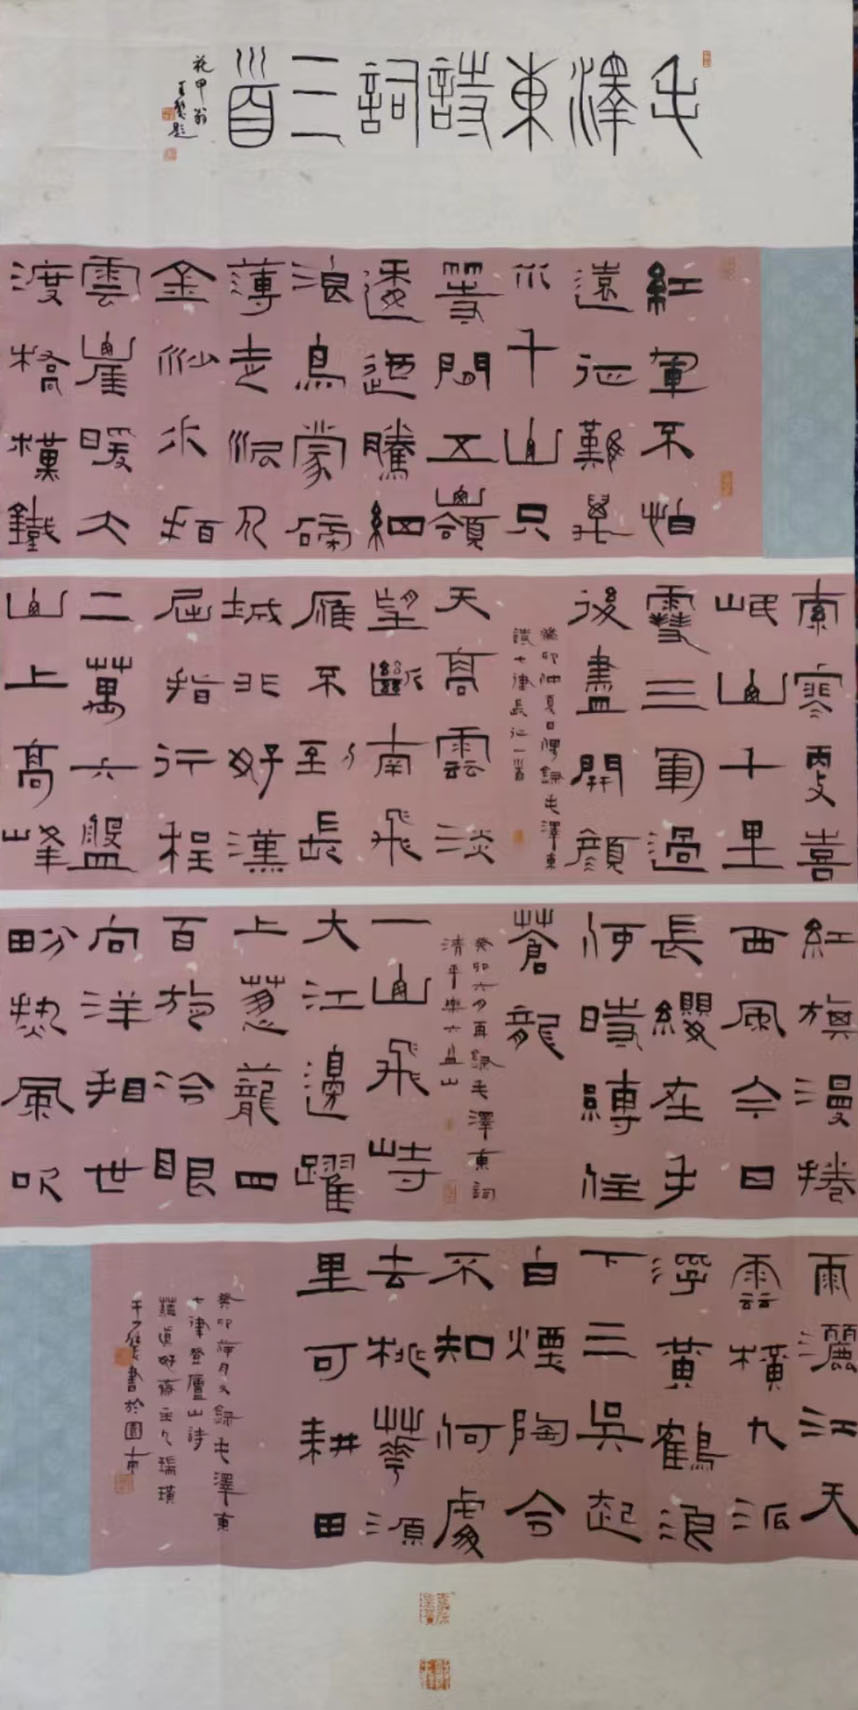 毛澤東詩詞三首
花甲翁
題
紅軍不怕
遠征難萬
水千山只
等閒五嶺
逶迤騰細
浪烏蒙磅
薄走泥丸
金沙水拍
雲崖暖大
渡橋橫鐵
索寒更喜
岷山千里
雪三軍過
後盡開顏
癸卯仲夏日偶錄毛澤東
詩七律長征一首
天高雲淡
望斷南飛
雁不到長
城非好漢
屈指行程
二萬六盤
山上高峰
紅旗漫捲
西風今日
長纓在手
何時縛住
蒼龍
癸卯六月再錄毛澤東詞
清平樂六盤山
一山飛峙
大江邊躍
上蔥蘢四
百旋冷眼
向洋看世
界熱風吹
雨灑江天
雲橫九派
浮黃鶴浪
下三吳起
白煙陶令
不知何處
去桃花源
里可耕田
癸卯月又錄毛澤東
七律登廬山詩
書於